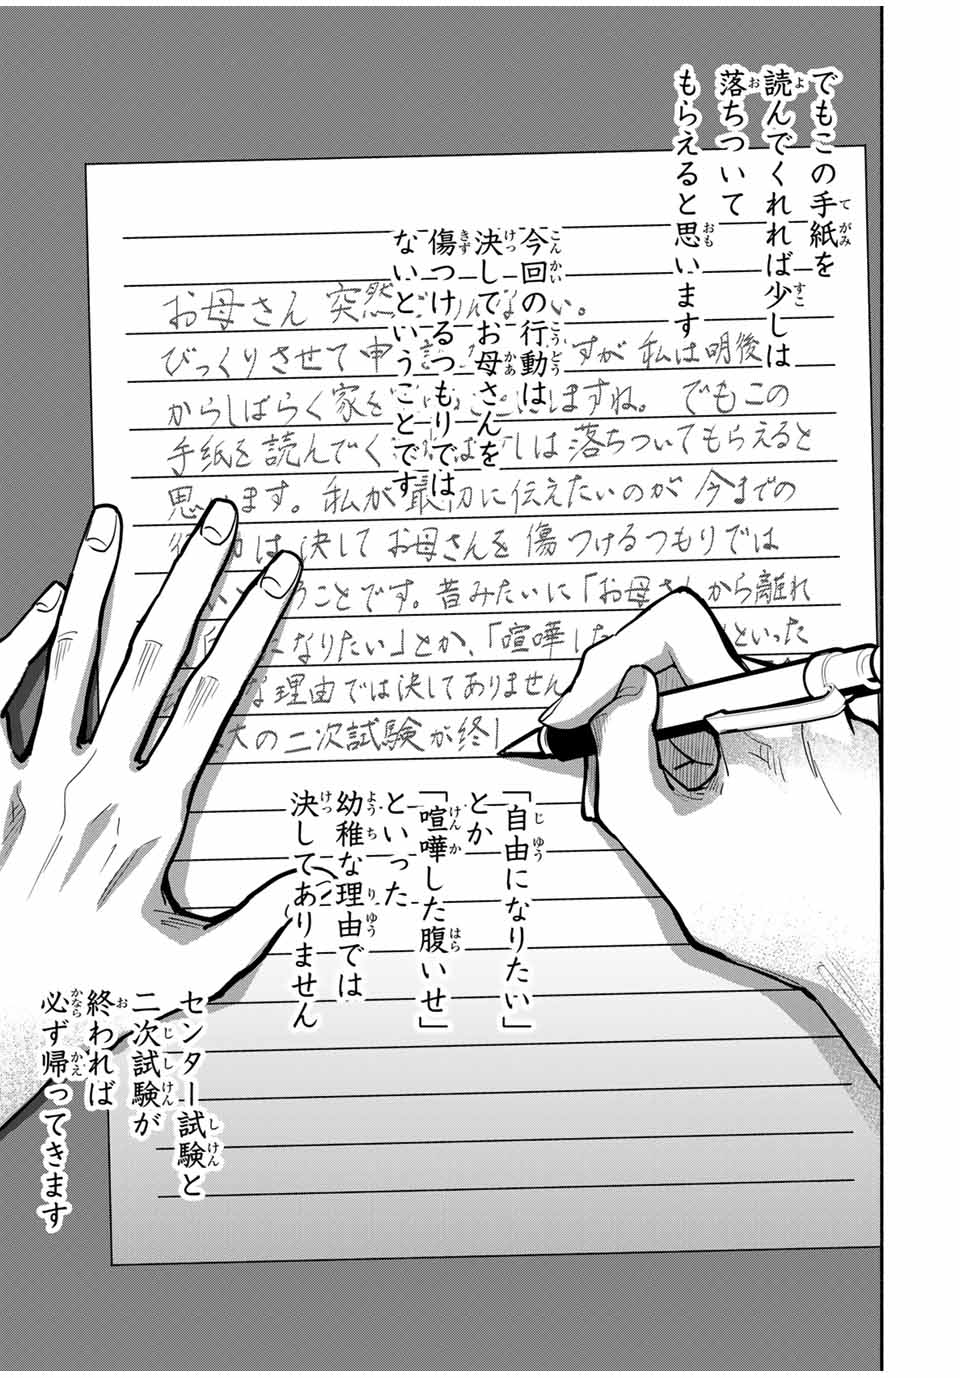 でもこの手紙を
読んでくれれば少しは
落ちついて
もらえると思います
今回の行動は
決してお母さんを
傷つけるつもりでは
ないということです
お母さん 突然 い。
びっくりさせて申 すが 私は明後
からしばらく家を ますね。 でもこの
手紙を読んでく しは落ちついてもらえると
思 ます。私が最初に伝えたいのが 今までの
は 決して お母さんを 傷つけるつもりでは
うことです。昔みたいに「お母さんから離れ
なりたい」とか、「喧嘩した といった
な理由では決してありません
の二次試験が終
「自由になりたい」
とか
「喧嘩した腹いせ」
といった
幼稚な理由では
決してありません
センター試験と
二次試験が
終われば
必ず帰ってきます